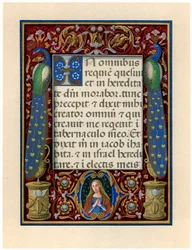 N omnibus
requiē quesiui
et in heredita
te dñi morabor. tunc
precepit ⁊ dixit mihi
creator omniũ ⁊ qui
creauit me requieuit i
tabernaculo meo. Et
dixit m in iacob iha
bita. ⁊ in israel heredi
tare. ⁊ i electis meis